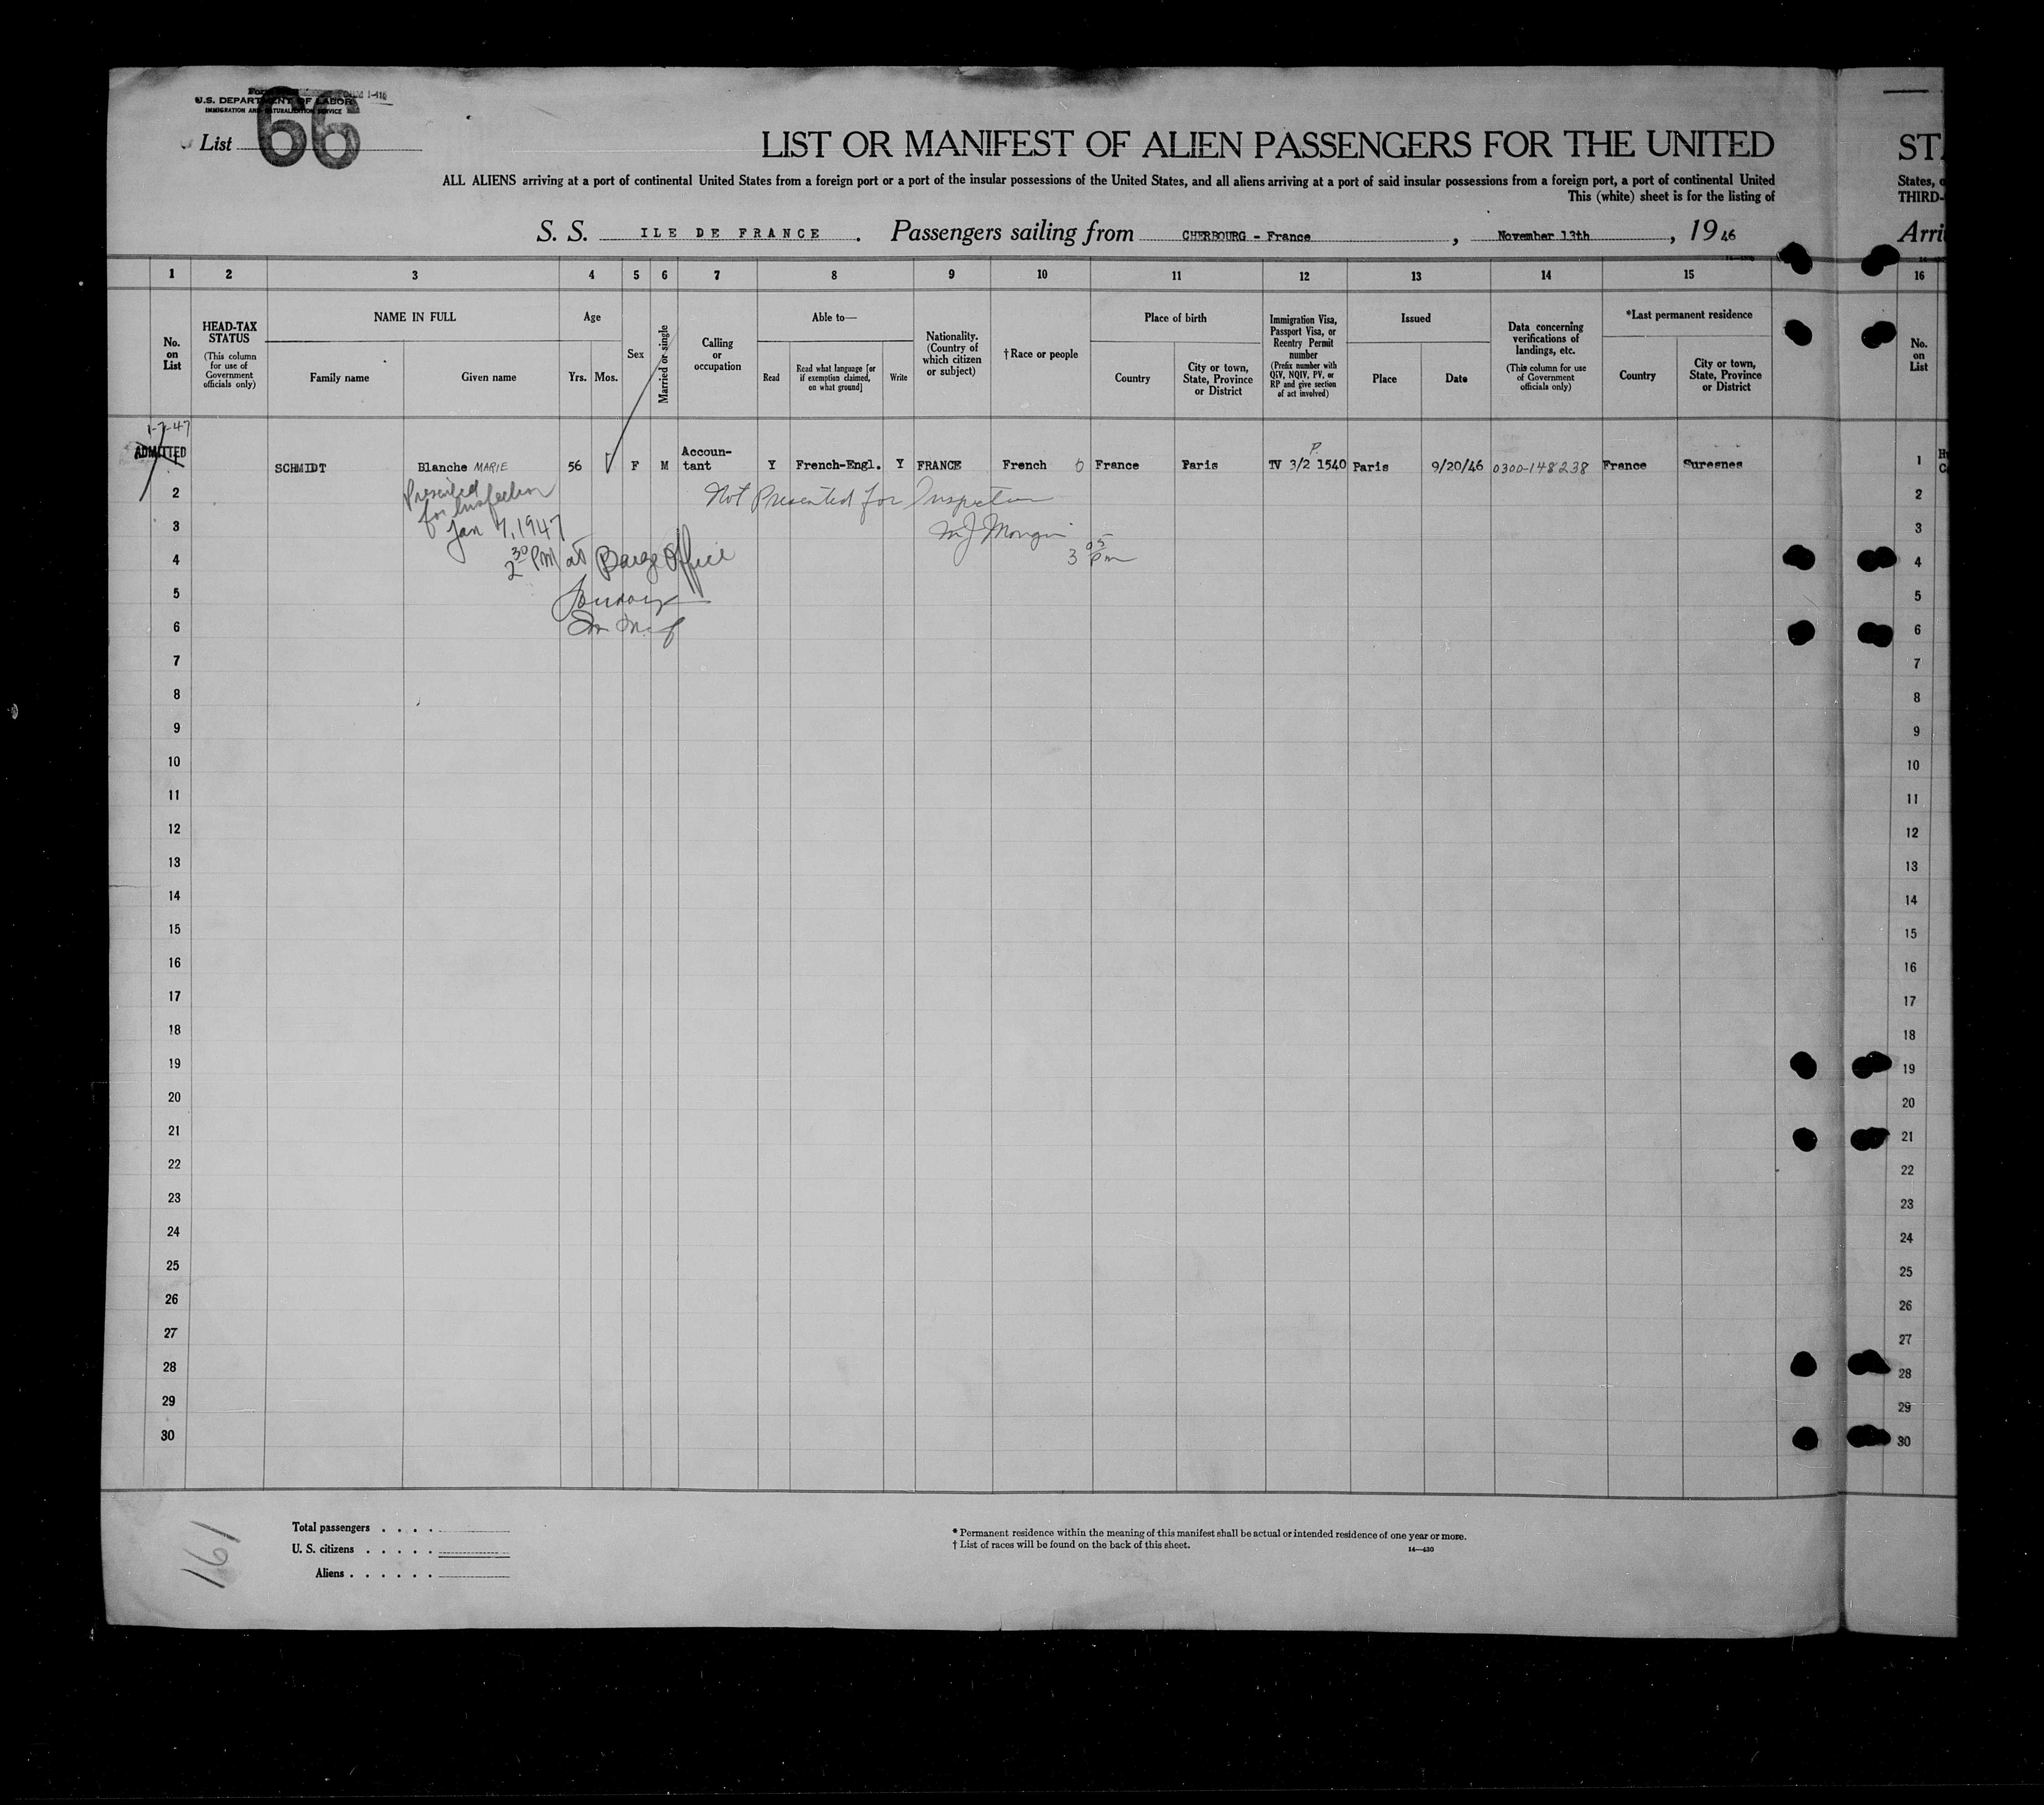 U.S. DEPARTMENT OF LABOR
IMMIGRATION AND NATURALIZATION SERVICE
List 66
LIST OR MANIFEST OF ALIEN PASSENGERS FOR THE UNITED
ALL ALIENS arriving at a port of continental United States from a foreign port or a port of the insular possessions of the United States, and all aliens arriving at a port of said insular possessions from a foreign port, a port of continental United
This (white) sheet is for the listing of
S. S. ILE DE FRANCE. Passengers sailing from CHERBOURG - France, November 13th, 1946
ST
States,
THIRD-
Arri
1 2 3 4 5 6 7 8 9 10 11 12 13 14 15 16
No. on List
HEAD-TAX STATUS
(This column for use of Government officials only)
NAME IN FULL
Family name
Given name
Age
Yrs. Mos.
Sex
Married or single
Calling or occupation
Able to—
Read
Read what language [or if exemption claimed, on what ground]
Write
Nationality. (Country of which citizen or subject)
†Race or people
Place of birth
Country
City or town, State, Province or District
Immigration Visa, Passport Visa, or Reentry Permit number
(Prefix number with QIV, NQIV, PV, or RP and give section of act involved)
Issued
Place
Date
Data concerning verifications of landings, etc.
(This column for use of Government officials only)
*Last permanent residence
Country
City or town, State, Province or District
No. on List
1-7-47
ADMITTED
SCHMIDT Blanche MARIE 56 F M Accoun-tant Y French-Engl. Y FRANCE French France Paris P. TV 3/2 1540 Paris 9/20/46 0300-148238 France Suresnes 1
2 Presented for Inspection Not Presented for Inspection 2
3 Jan 7, 1947 3
4 2 30 PM at Barge Office 3 05 pm 4
5 5
6 6
7 7
8 8
9 9
10 10
11 11
12 12
13 13
14 14
15 15
16 16
17 17
18 18
19 19
20 20
21 21
22 22
23 23
24 24
25 25
26 26
27 27
28 28
29 29
30 30
161
Total passengers . . . .
U. S. citizens . . . . .
Aliens . . . . . .
* Permanent residence within the meaning of this manifest shall be actual or intended residence of one year or more.
† List of races will be found on the back of this sheet.
14—430